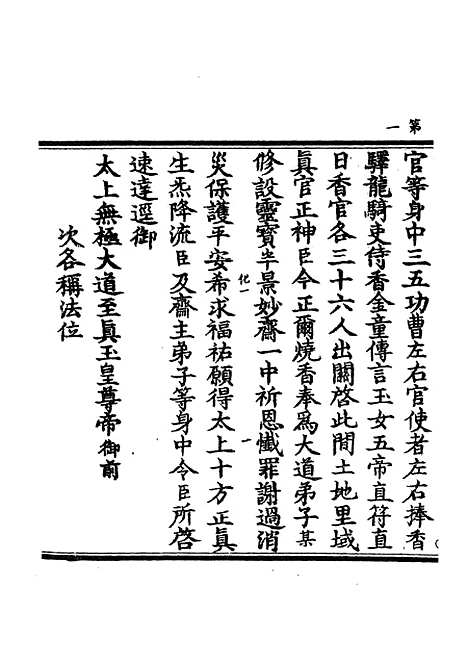 第一
官等身中三五功曹左右官使者左右捧香
驛龍騎吏侍香金童傳言玉女五帝直符直
日香官各三十六人出關啓此間土地里域
眞官正神臣今正爾燒香奉爲大道弟子某
修設靈寶半景妙齋一中祈恩懺罪謝過消
化一
災保護平安希求福祐願得太上十方正眞
生炁降流臣及齋主弟子等身中令臣所啓
速達逕御
太上無極大道至眞玉皇尊帝御前
次各稱法位